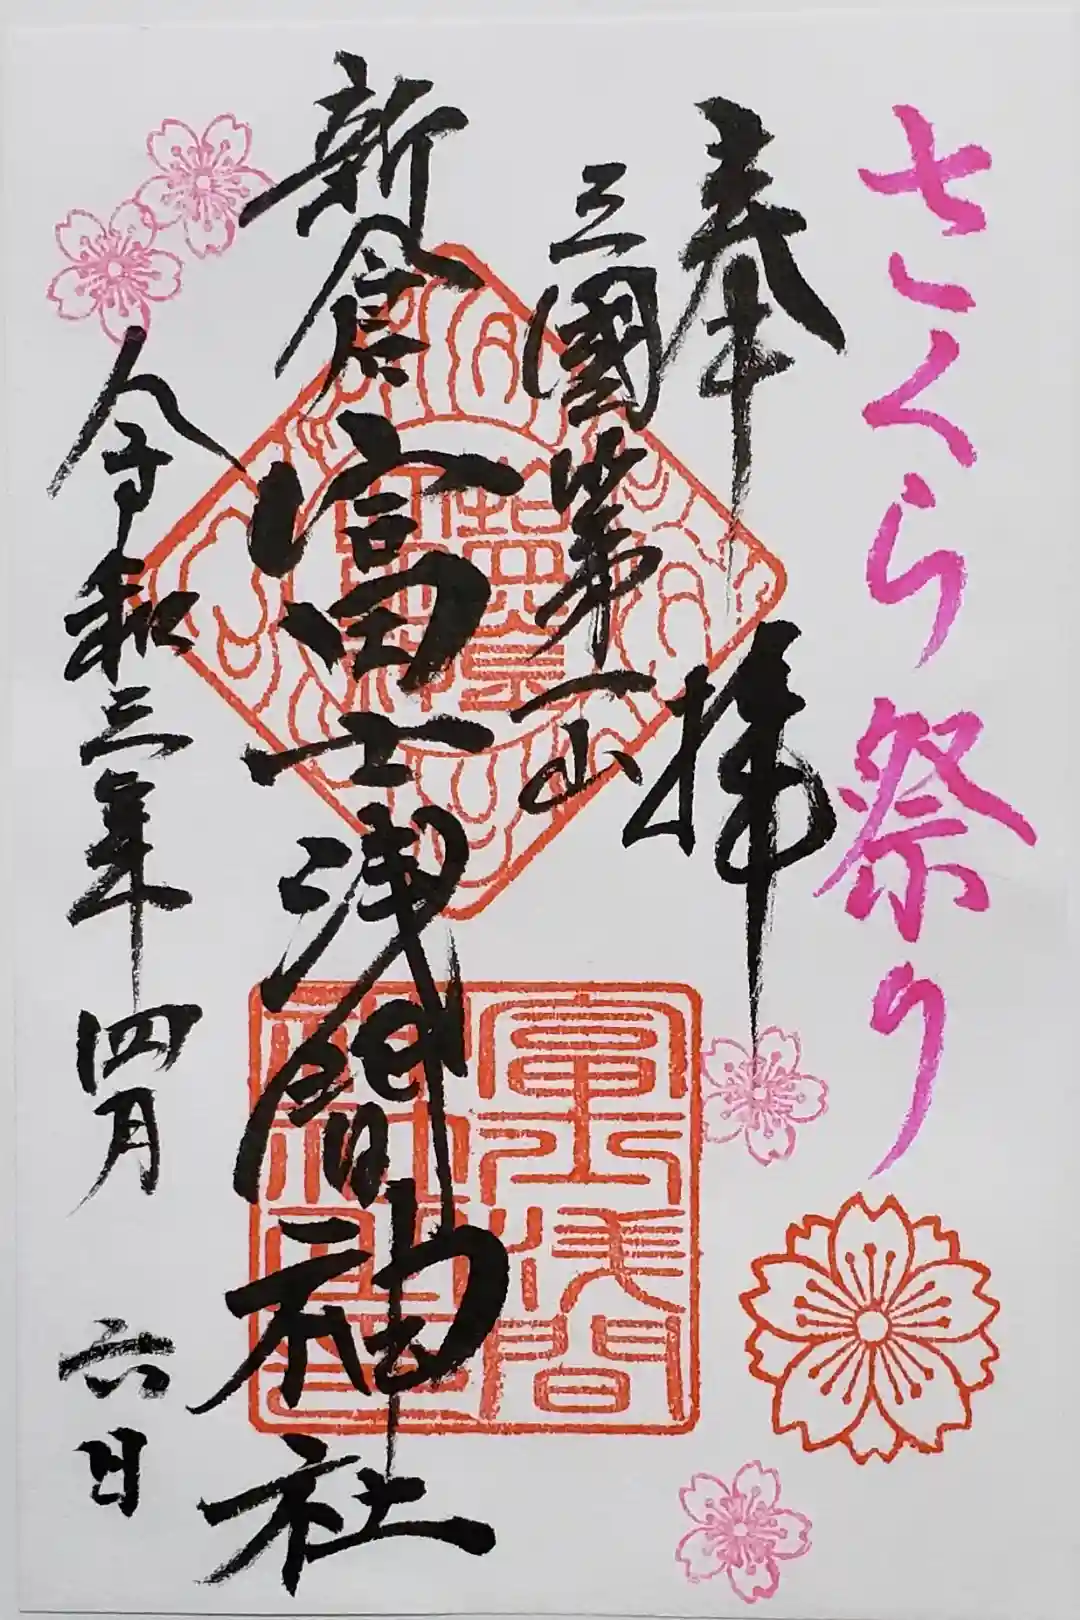 さくら祭り
奉拝
三國第一山
新倉富士浅間神社
令和三年四月六日